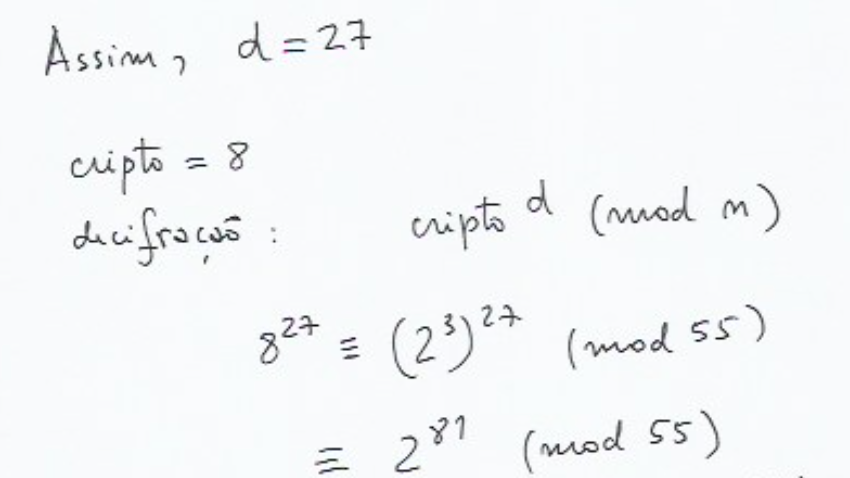 Assim, d = 27
cripto = 8
decifração : cripto^d (mod n)
8^27 ≡ (2^3)^27 (mod 55)
≡ 2^81 (mod 55)